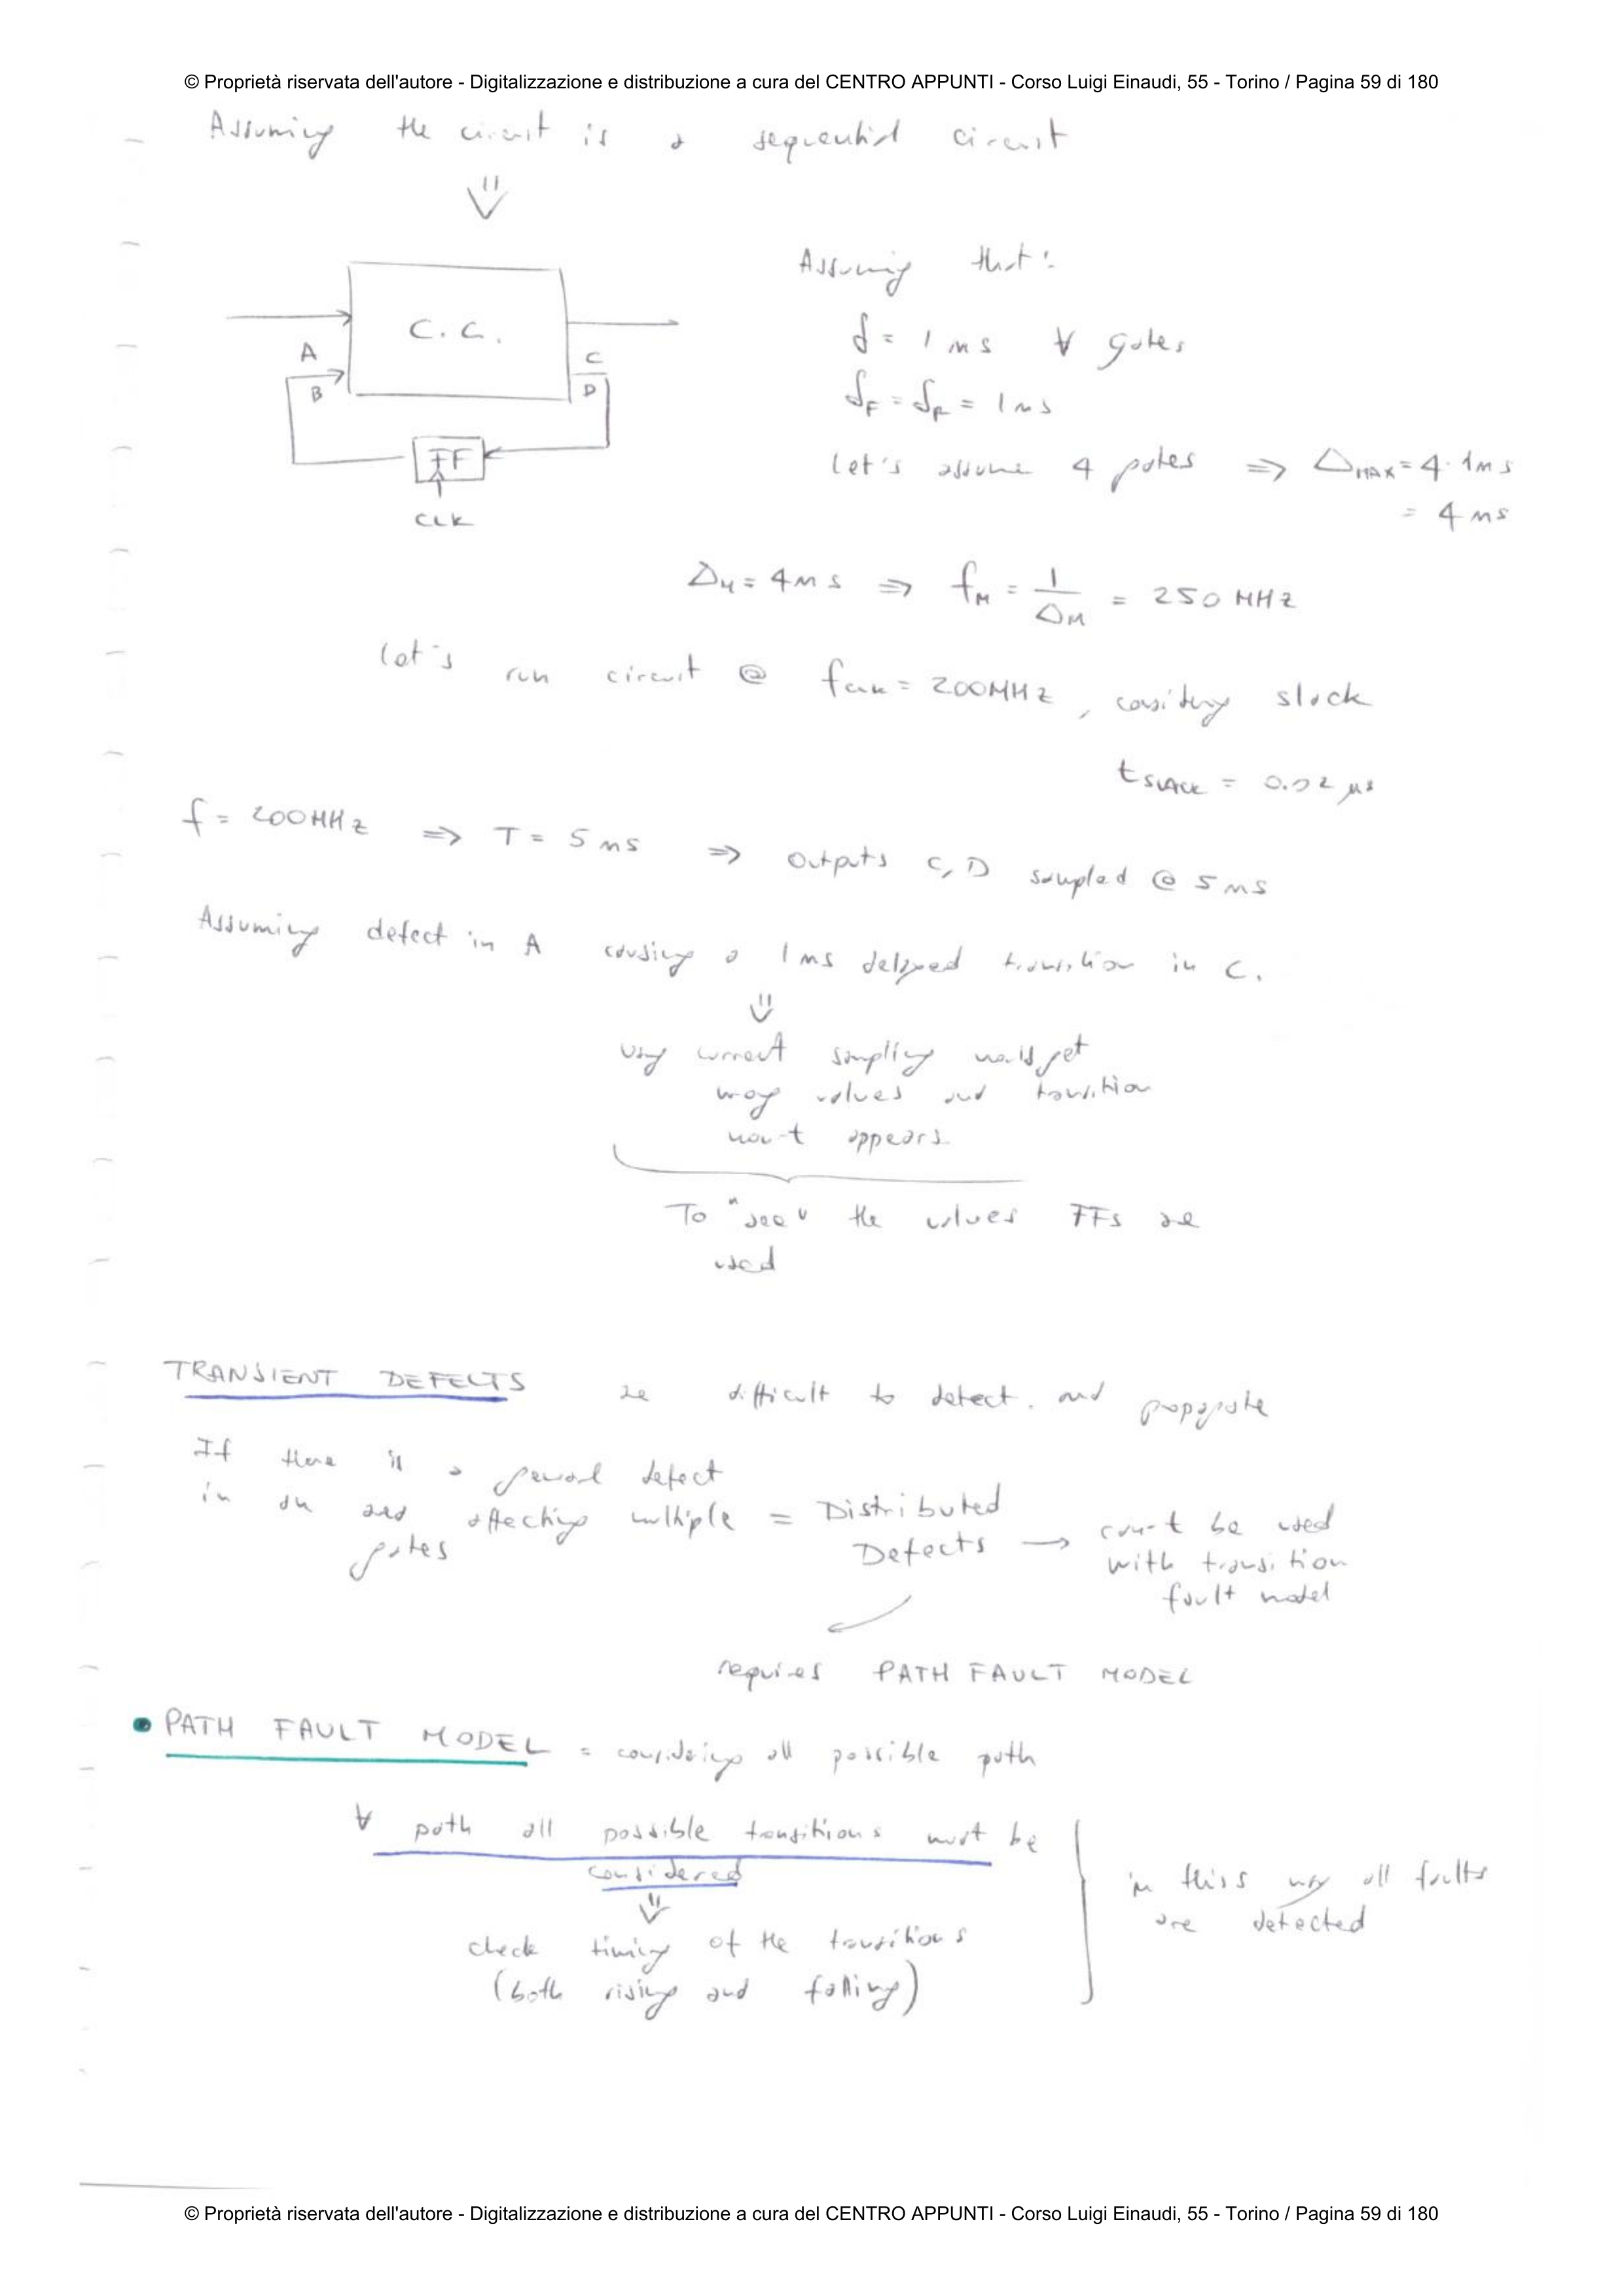 © Proprietà riservata dell'autore - Digitalizzazione e distribuzione a cura del CENTRO APPUNTI - Corso Luigi Einaudi, 55 - Torino / Pagina 59 di 180
Assuming the circuit is a sequential circuit
⇓
Assuming that:
C.C.
δ = 1 ns ∀ gates
A
C
B
D
δF = δR = 1 ns
FF
let's assume 4 gates ⇒ ΔMAX = 4 · 1ns
= 4 ns
CLK
ΔM = 4 ns ⇒ fM = 1/ΔM = 250 MHz
Let's run circuit @ fCLK = 200MHz, considering slack
tSLACK = 0.02 μs
f = 200MHz ⇒ T = 5 ns ⇒ outputs C, D sampled @ 5 ns
Assuming defect in A causing a 1 ns delayed transition in C.
⇓
using current sampling would get
wrong values and transition
won't appears.
To "see" the values FFs are
used
TRANSIENT DEFECTS are difficult to detect. and propagate
If there is a general defect
in an area affecting multiple = Distributed
gates
Defects → can't be used
with transition
fault model
requires PATH FAULT MODEL
• PATH FAULT MODEL = considering all possible path
∀ path all possible transitions must be
considered
⇓
check timing of the transitions
(both rising and falling)
in thiss way all faults
are detected
© Proprietà riservata dell'autore - Digitalizzazione e distribuzione a cura del CENTRO APPUNTI - Corso Luigi Einaudi, 55 - Torino / Pagina 59 di 180